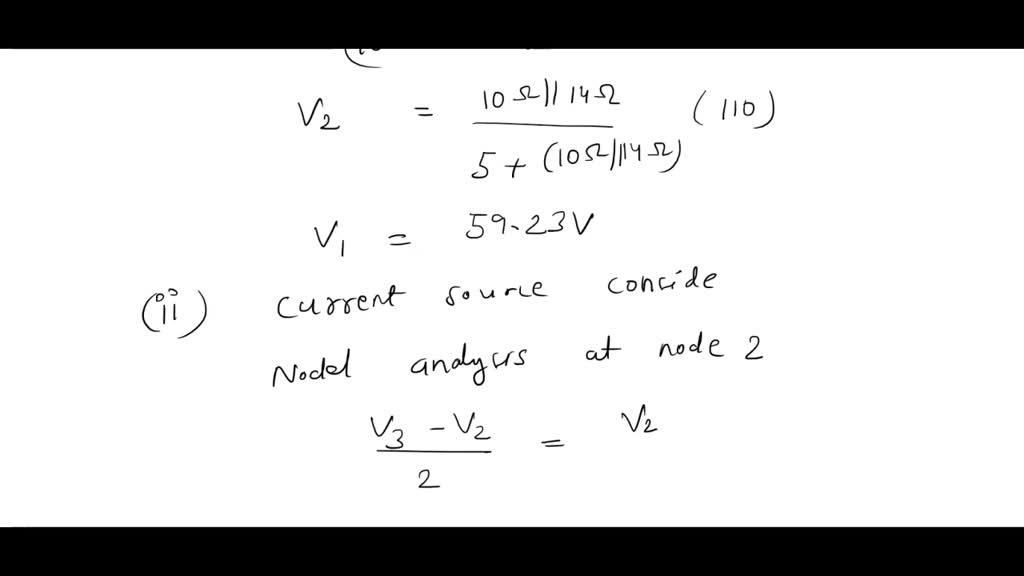 V₂ = 10Ω||14Ω / 5 + (10Ω||14Ω) (110)
V₁ = 59.23V
(ii) Current source conside
Nodel analysis at node 2
V₃ - V₂ / 2 = V₂